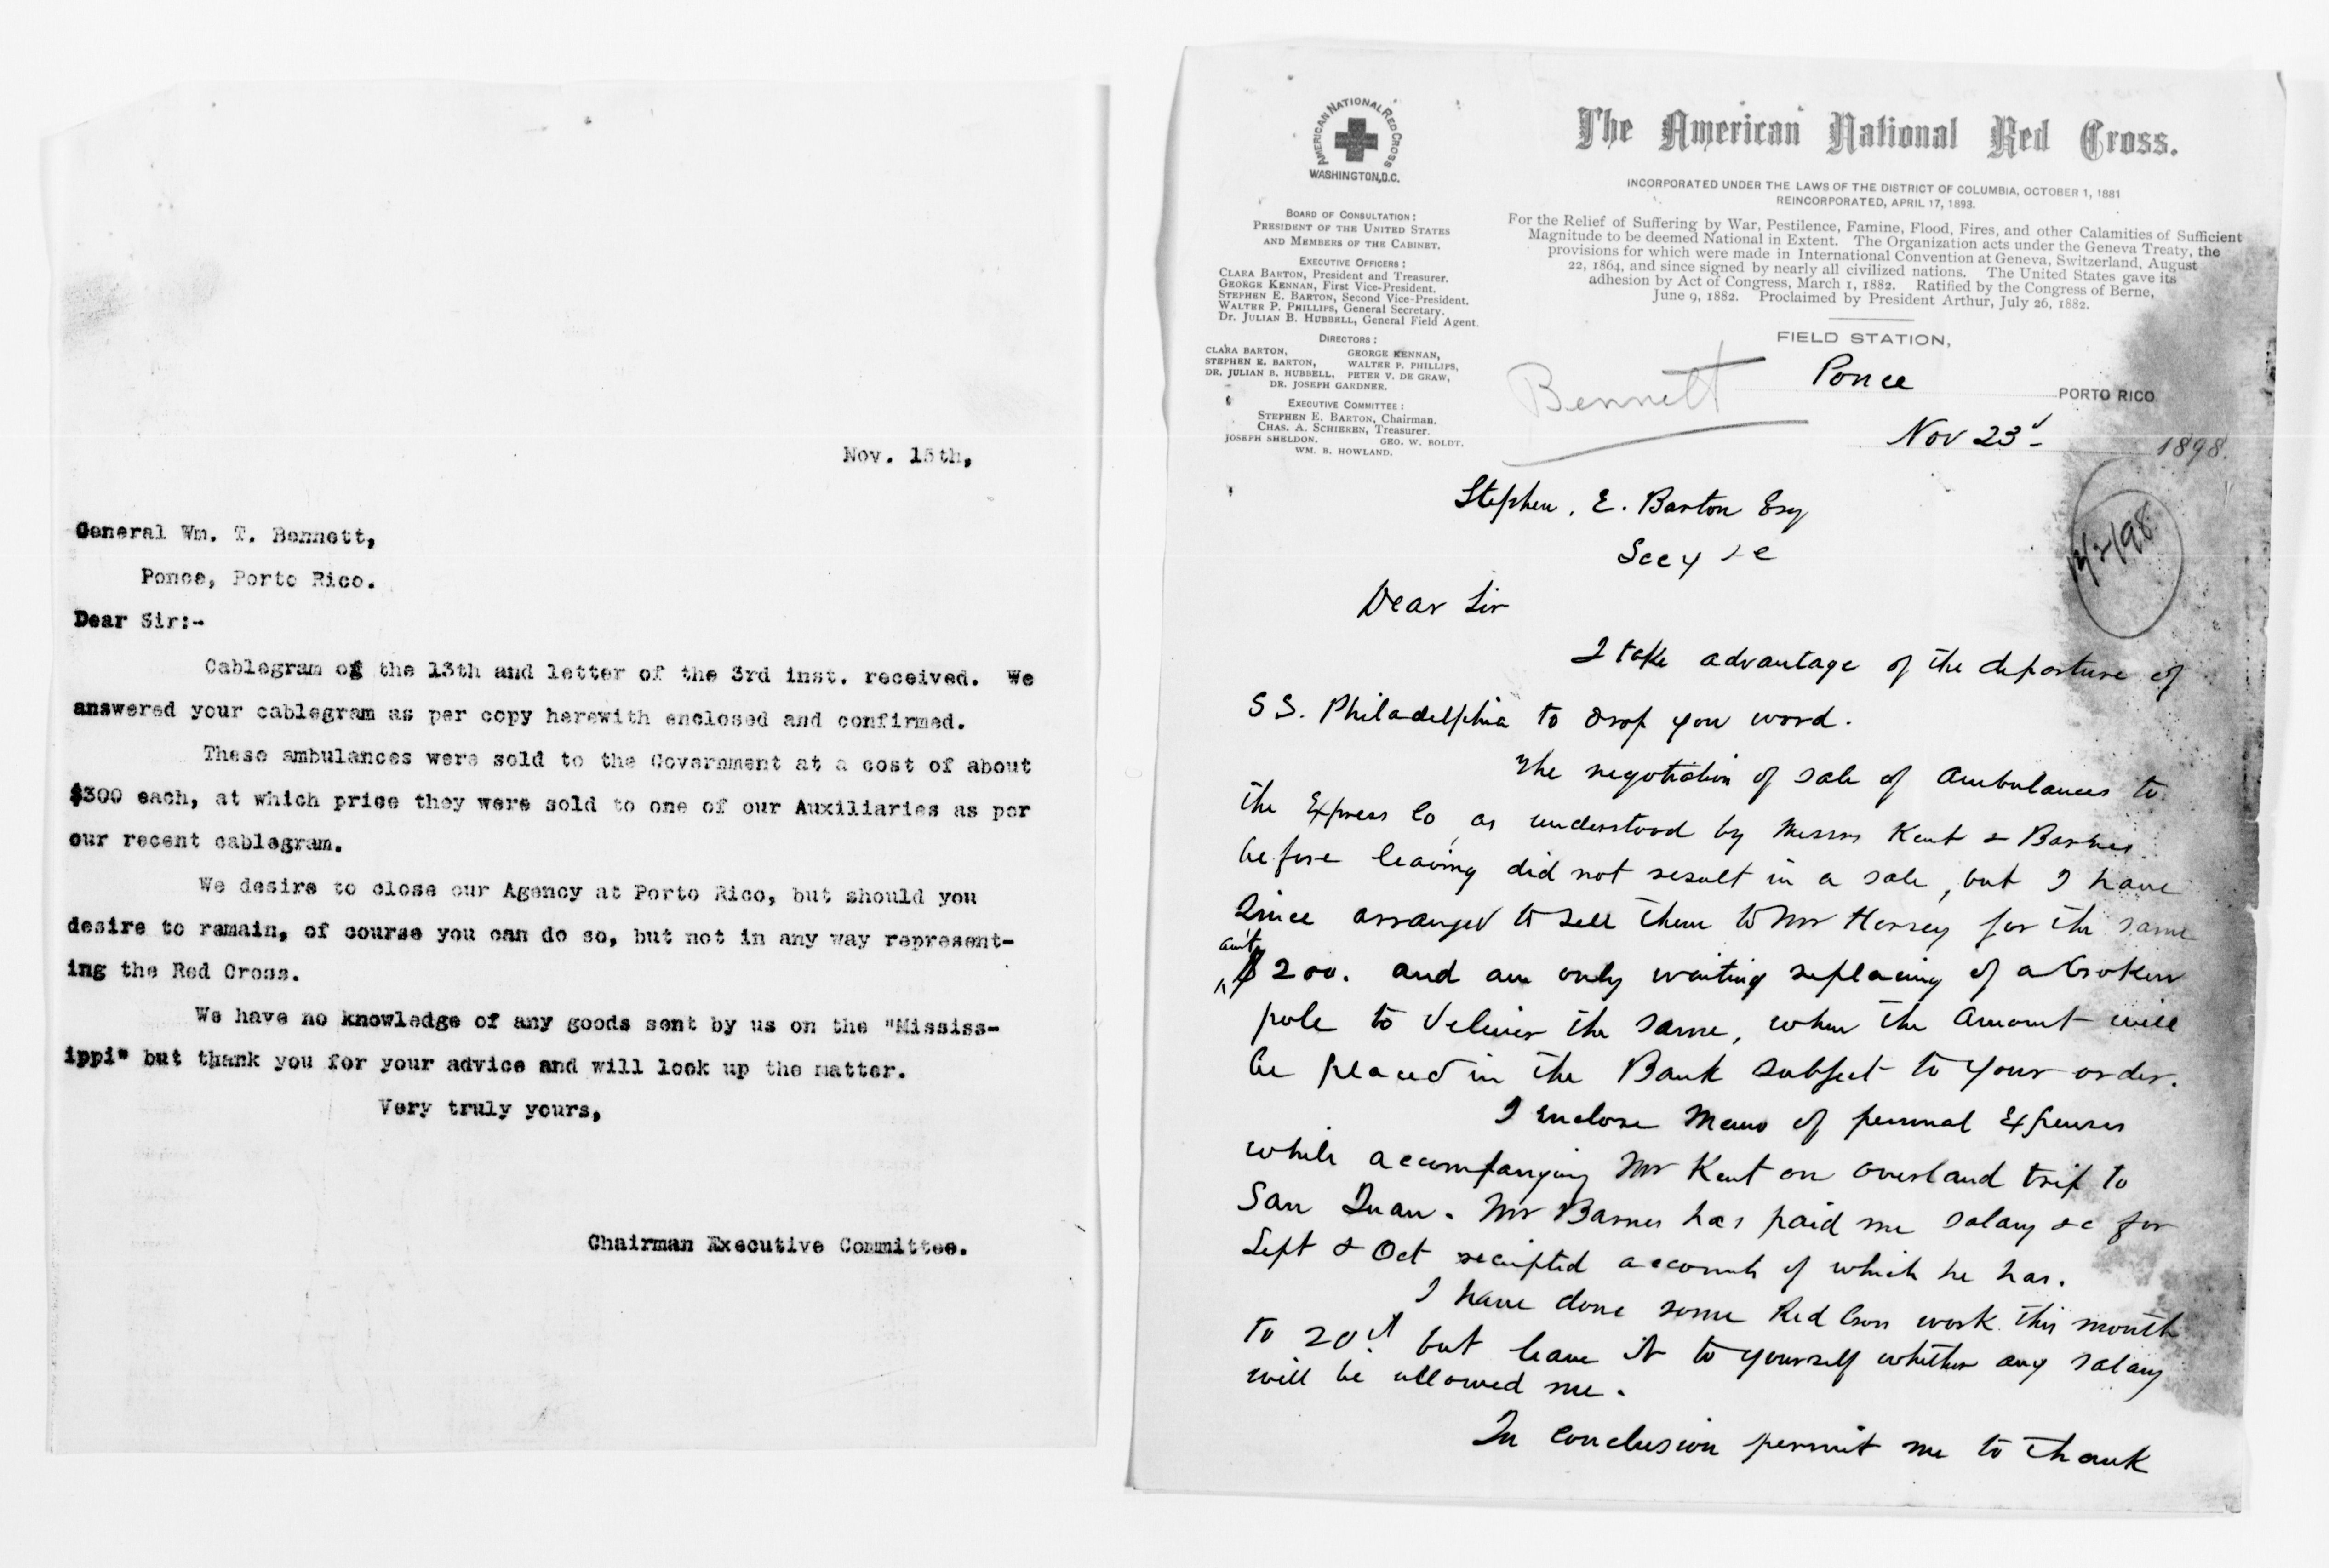 Nov. 15th,
General Wm. T. Bennett,
Ponce, Porto Rico.
Dear Sir:-
Cablegram of the 13th and letter of the 3rd inst. received. We
answered your cablegram as per copy herewith enclosed and confirmed.
These ambulances were sold to the Government at a cost of about
$300 each, at which price they were sold to one of our Auxiliaries as per
our recent cablegram.
We desire to close our Agency at Porto Rico, but should you
desire to remain, of course you can do so, but not in any way represent-
ing the Red Cross.
We have no knowledge of any goods sent by us on the "Mississ-
ippi" but thank you for your advice and will look up the matter.
Very truly yours,
Chairman Executive Committee.
AMERICAN NATIONAL RED CROSS
WASHINGTON, D.C.
The American National Red Cross.
INCORPORATED UNDER THE LAWS OF THE DISTRICT OF COLUMBIA, OCTOBER 1, 1881
REINCORPORATED, APRIL 17, 1893.
For the Relief of Suffering by War, Pestilence, Famine, Flood, Fires, and other Calamities of Sufficient
Magnitude to be deemed National in Extent. The Organization acts under the Geneva Treaty, the
provisions for which were made in International Convention at Geneva, Switzerland, August
22, 1864, and since signed by nearly all civilized nations. The United States gave its
adhesion by Act of Congress, March 1, 1882. Ratified by the Congress of Berne,
June 9, 1882. Proclaimed by President Arthur, July 26, 1882.
BOARD OF CONSULTATION:
PRESIDENT OF THE UNITED STATES
AND MEMBERS OF THE CABINET.
EXECUTIVE OFFICERS:
CLARA BARTON, President and Treasurer.
GEORGE KENNAN, First Vice-President.
STEPHEN E. BARTON, Second Vice-President.
WALTER P. PHILLIPS, General Secretary.
DR. JULIAN B. HUBBELL, General Field Agent.
DIRECTORS:
CLARA BARTON, GEORGE KENNAN,
STEPHEN E. BARTON, WALTER P. PHILLIPS,
DR. JULIAN B. HUBBELL, PETER V. DE GRAW,
DR. JOSEPH GARDNER.
EXECUTIVE COMMITTEE:
STEPHEN E. BARTON, Chairman.
CHAS. A. SCHIEREN, Treasurer.
JOSEPH SHELDON. GEO. W. BOLDT.
WM. B. HOWLAND.
FIELD STATION,
Bennett
Ponce PORTO RICO
Nov 23d 1898.
12/2/98
Stephen. E. Barton Esq
Secy
Dear Sir
I take advantage of the departure of
SS. Philadelphia to drop you word.
The negotiation of sale of Ambulances to
the Express Co, as understood by Messrs Kent & Barnes
before leaving did not result in a sale, but I have
since arranged to sell them to Mr Horsey for the same
amt
$200. and am only waiting replacing of a broken
pole to deliver the same, when the amount will
be placed in the Bank subject to your order.
I enclose Memo of personal Expenses
while accompanying Mr Kent on overland trip to
San Juan. Mr Barnes has paid me salary &c for
Sept & Oct receipted accounts of which he has.
I have done some Red Cross work this month
to 20th but leave it to yourself whether any salary
will be allowed me.
In conclusion permit me to thank